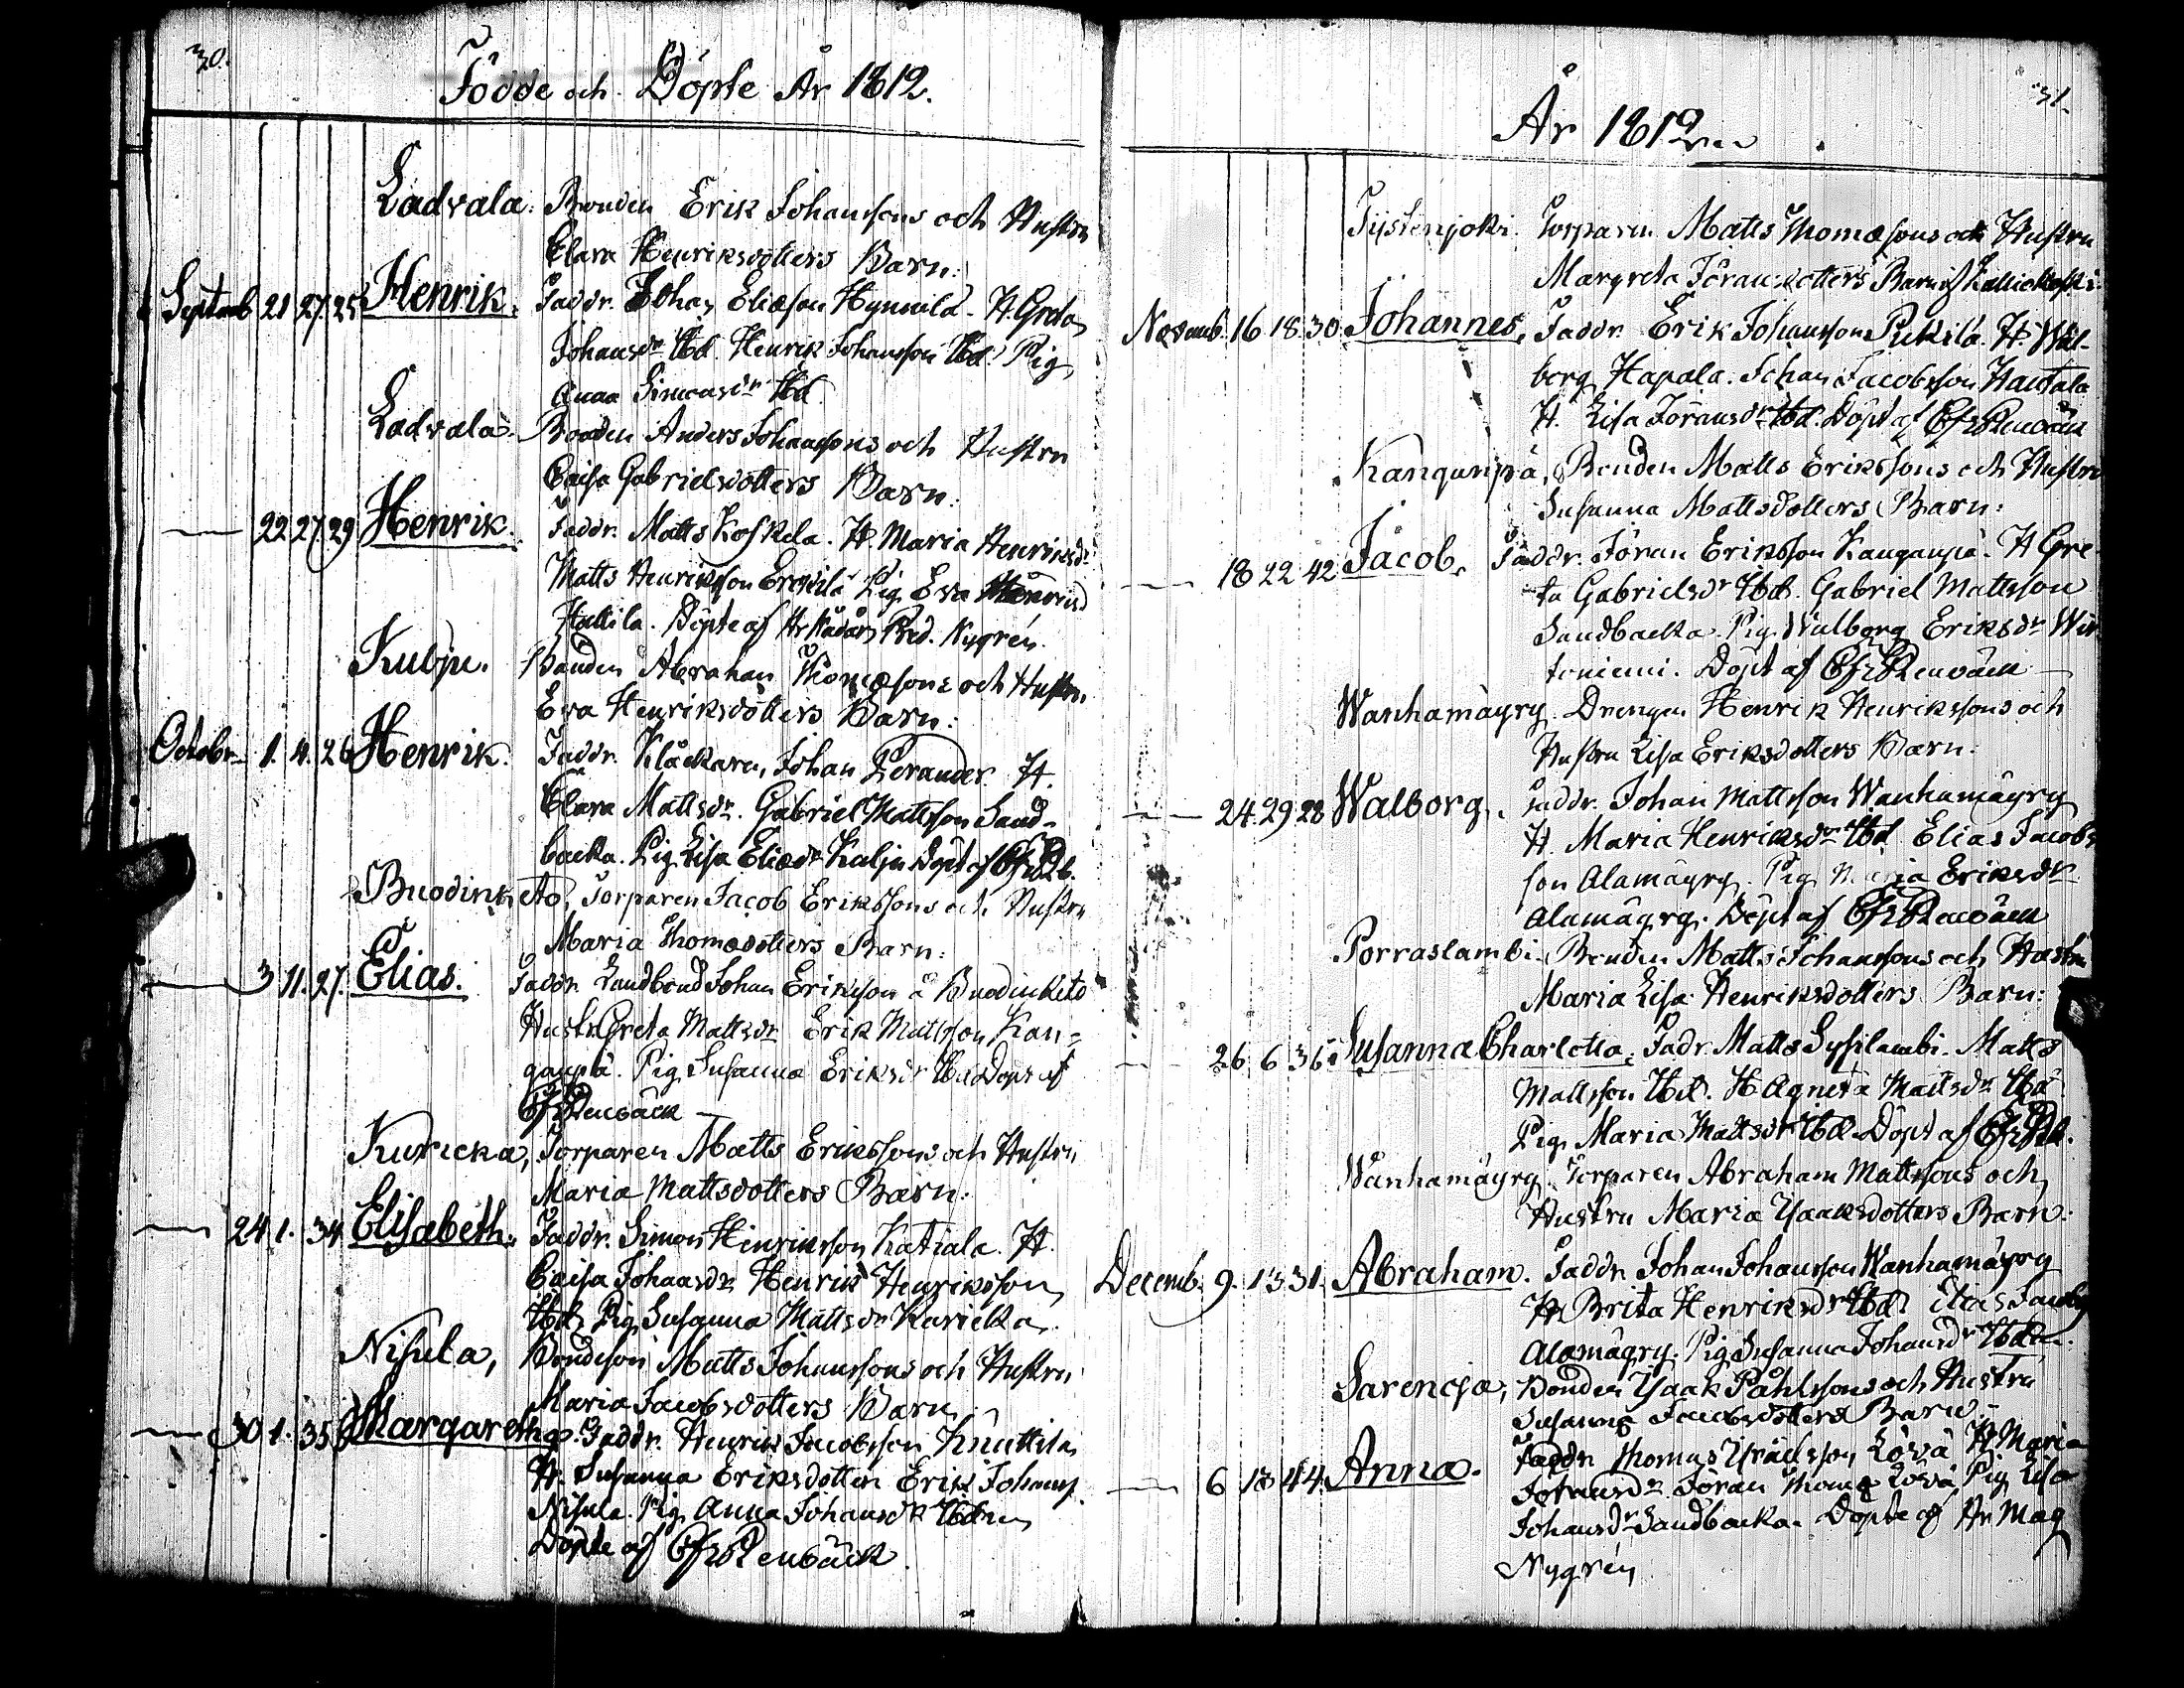 30.
Födde och Döpte År 1812.
Ladvala: Bonden Erik Johanssons och Hustru
Clara Henriksdotters Barn:
Septemb 21 27 25 Henrik. Faddr. Johan Eliæson Hynnilä. H. Greta
Johansdr Ibd. Henrik Johansson Ibd. Pig.
Anna Simonsdr Ibd.
Ladvala. Bonden Anders Johanssons och Hustru
Caisa Gabrielsdotters Barn:
22 27 29 Henrik. Faddr. Matts Koskela. H. Maria Henriksdr
Matts Henriksson Pig. Eva
Hallila. Döpte af Hr Pred. Nygrén.
Bonden Abraham Thomæsons och Hustru
Eva Henriksdotters Barn:
Octobr 1. 4. 26 Henrik. Faddr. Klåckaren Johan Perander H.
Clara Mattsdr. Gabriel Mattsson Sand-
backa. Pig. Lisa Eliædr Döpt af
Buodinketo, Torparen Jacob Erikssons och Hustru
Maria Thomædotters Barn:
3 11. 27. Elias. Faddr. Landbond Johan Eriksson å Buodinketo
Hustr. Greta Mattsdr Erik Mattsson Kan-
ganpä. Pig. Susanna Eriksdr Ibd Döpt af
Renbäck
Kuricka, Torparen Matts Erikssons och Hustru
Maria Mattsdotters Barn:
24 1. 34 Elisabeth. Faddr. Simon Henriksson Katiala. H.
Caisa Johansdr Henrik Henriksson
Ibd. Pig. Susanna Mattsdr Karicka.
Nisula, Bondeson Matts Johanssons och Hustru
Maria Jacobsdotters Barn
30 1. 35 Margaretha. Faddr. Henrik Jacobsson Knuttila
H. Susanna Eriksdotter Erik Johans.
Nisula. Pig. Anna Johansdr
Döpte af Renbäck.
31.
År 1812
Tystenjoki. Torparen Matts Thomæsons och Hustru
Margreta Göransdotters Barn
Novemb. 16 18. 30 Johannes. Faddr. Erik Johansson Pukila. H. Wal-
borg Hapala. Johan Jacobsson Hautala
H. Lisa Göransdr Ibd. Döpt af Renbäck
Kanganpä, Bonden Matts Erikssons och Hustru
Susanna Mattsdotters Barn:
18 22 42 Jacob. Faddr. Göran Eriksson Kanganpä. H Gre-
ta Gabrielsdr Ibd. Gabriel Mattsson
Sandbacka. Pig. Walborg Eriksdr Wir-
taniemi. Döpt af Renbäck
Wanhamäyry. Drengen Henrik Henrikssons och
Hustru Lisa Eriksdotters Barn:
24 29 28 Walborg. Faddr. Johan Mattsson Wanhamäyry
H. Maria Henriksdr Ibd. Elias Jacobs-
son Alamäyry. Pig. Maria Eriksdr
Alamäyry. Döpt af Renbäck
Porraslambi. Bonden Matts Johanssons och Hustru
Maria Lisa Henriksdotters Barn:
26 6 36 Susanna Charlotta. Fadr. Matts Sysilambi. Matts
Mattsson Ibd. H Agneta Mattsdr Ibd
Pig. Maria Mattsdr Ibd. Döpt af
Wanhamäyry. Torparen Abraham Mattsons och
Hustru Maria Ysaksdotters Barn:
Decemb. 9. 13 31. Abraham. Faddr. Johan Johansson Wanhamäyry
H. Brita Henriksdr Ibd. Elias Jacobs
Alamäyry. Pig. Susanna Johansdr
Sarenoja, Bonden Ysaak Påhlssons och Hustru
Susanna Jacobsdotters Barn
6 18 44 Anna. Faddr Thomas Ysraelsson Lövä H. Maria
Johansdr. Göran Thomæ Lövä Pig. Lisa
Johansdr Sandbacka. Döpte af Hr. Mag
Nygrén